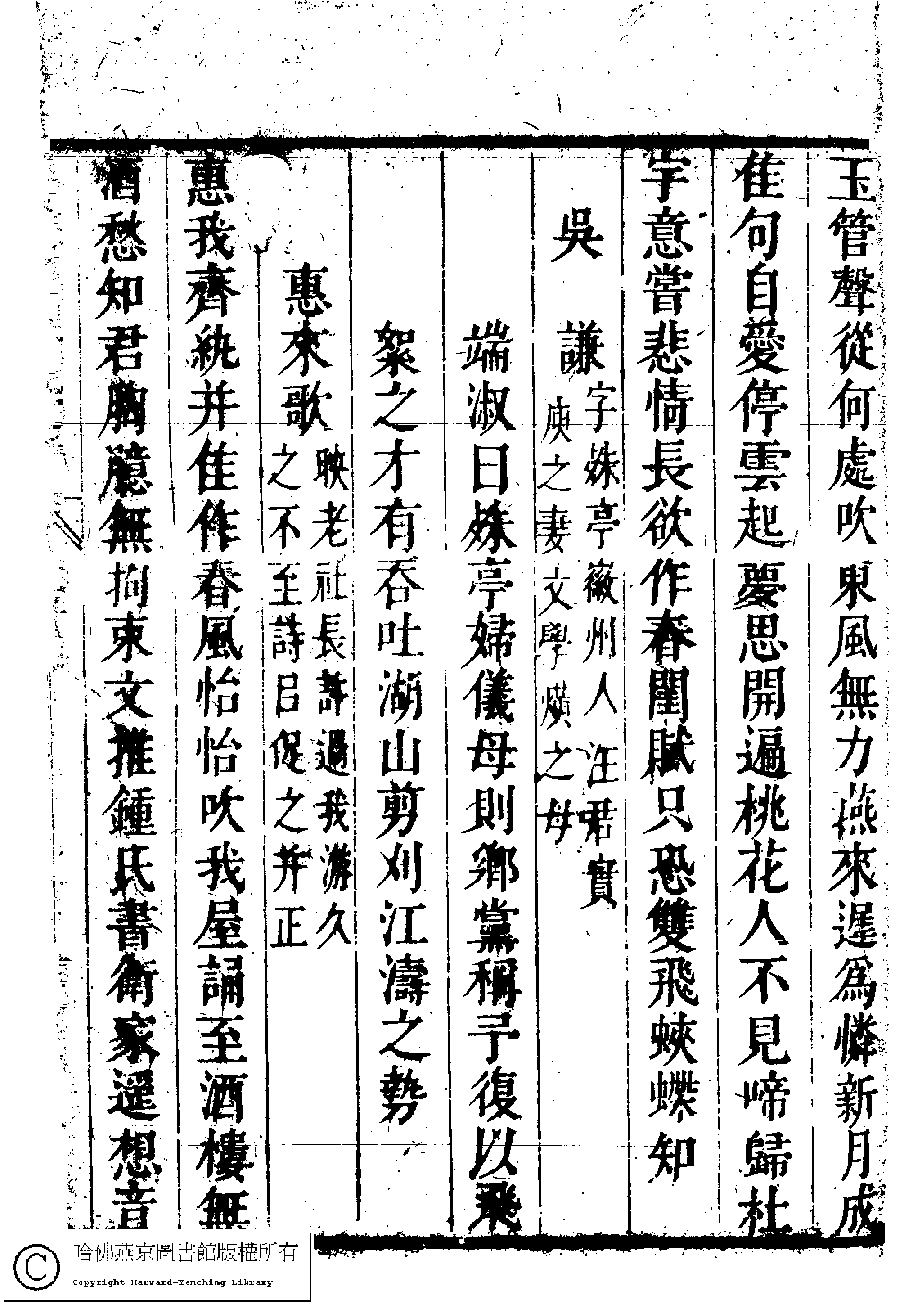 玉管聲從何處吹東風無力燕來遲爲憐新月成
佳句自愛停雲起夢思開遍桃花人不見啼歸杜
宇意嘗悲情長欲作春閨賦只恐雙飛蛺蝶知
吳謙
字姝亭徽州人汪君實
庾之妻文學㸅之母
端淑曰姝亭婦儀母則鄉黨稱予復以飛
絮之才有吞吐湖山剪刈江濤之勢
惠來歌
映老社長許過我游久
之不至詩㠯促之并正
惠我齊紈并佳作春風怡怡吹我屋誦至酒樓無
酒愁知君胸臆無拘束文推鍾氏書衛家遥想音
哈佛燕京圖書館版權所有
Copyright Harvard-Yenching Library